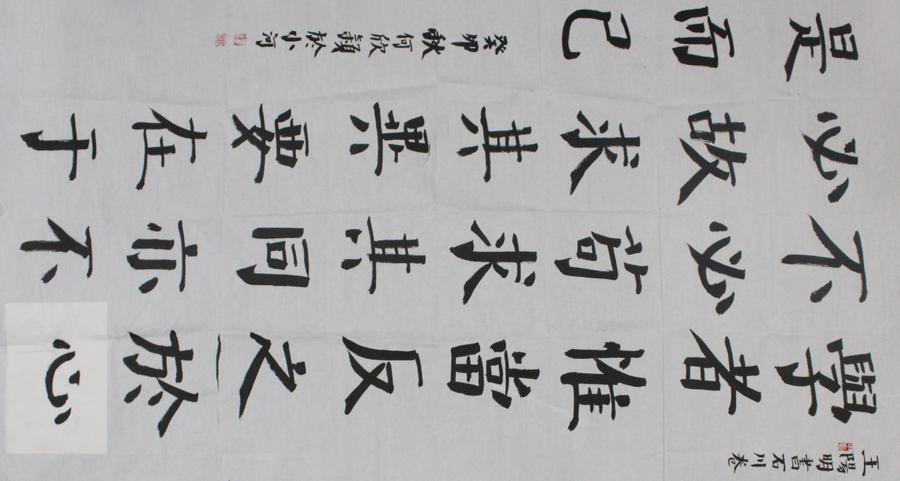 王陽明書石川卷
學者惟當反之於心
不必苟求其同亦不
必故求其異要在于
是而已
癸卯秋何欣穎於小河